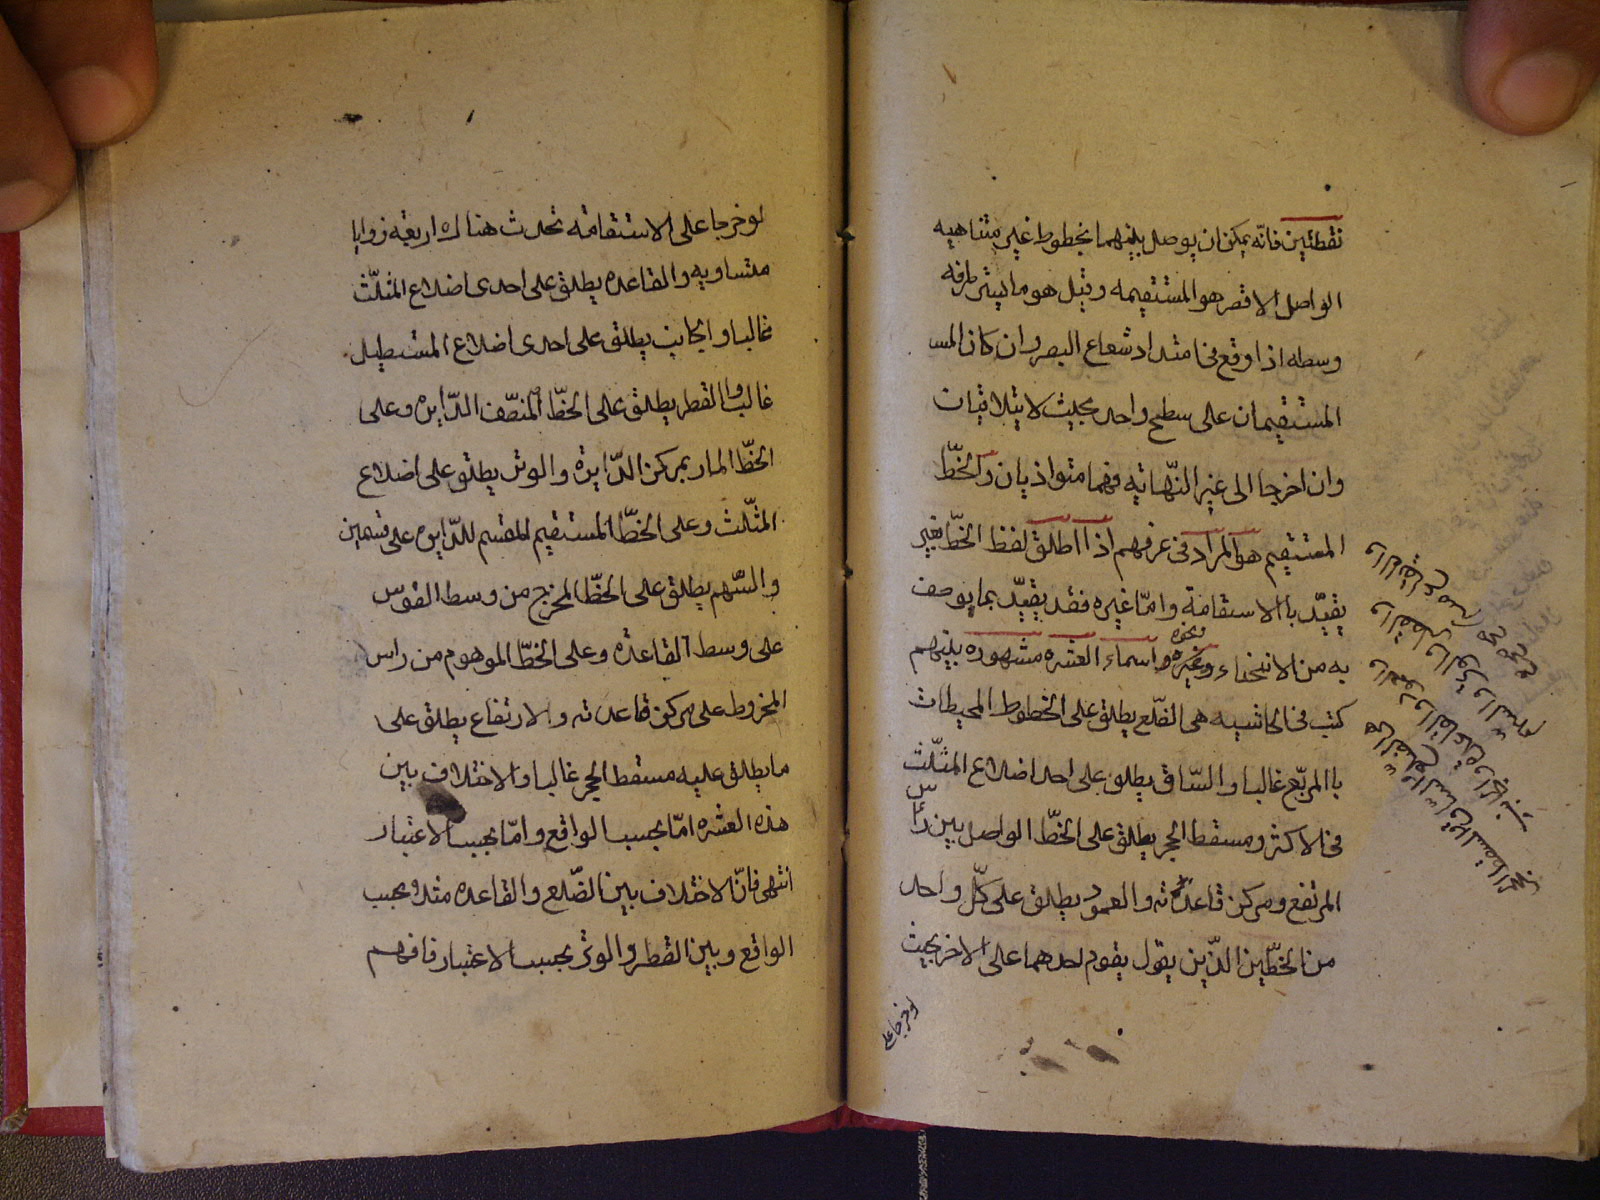 نقطتين فانّه يمكن ان يوصل بينهما بخطوط غير متناهيه
الواصل الاقصر هو المستقيمه وقيل هو ما يستر طرفه
وسطه اذا وقع فى امتداد شعاع البصر وان كان المس
المستقيمان على سطح واحد بحيث لا يتلاقيان
وان اخرجا الى غير النّهاية فهما متواذيان والخطّ
المستقيم هو المراد فى عرفهم اذا اطلق لفظ الخطّ بغير
يقيّد باالاستقامة وامّا غيره فقد يقيّد بما يوصف
به من الانحناء وغيره واسماء العشره مشهوره بينهم
ونحوه
كتب فى الحاشيه هى الضّلع يطلق على الخطوط المحيطات
باالمربّع غالبا والسّاق يطلق على احد اضلاع المثلّث
فى الاكثر ومسقط الحجر يطلق على الخطّ الواصل بين رأس
المرتفع ومركز قاعدته والعمود يطلق على كلّ واحد
من الخطّين الذّين يقول يقوم احدهما على الاخر بحيث
لو خرجا على
لو خرجا على الاستقامة تحدث هناك اربعة زوايا
متساويه والقاعده يطلق على احدى اضلاع المثلّث
غالبا والجانب يطلق على احدى اضلاع المستطيل
غالبا والقطر يطلق على الخطّ المنصّف الدّايره وعلى
الخطّ المار بمركز الدّايرة والوتر يطلق على اضلاع
المثلّث وعلى الخطّ المستقيم المقسم للدّايره على قسمين
والسّهم يطلق على الخطّ المخرج من وسط القوس
على وسط القاعده وعلى الخطّ الموهوم من راس
المخروط على مركز قاعدته والارتفاع يطلق على
ما يطلق عليه مسقط الحجر غالبا والاختلاف بين
هذه العشره امّا بحسب الواقع وامّا بحسب الاعتبار
انتهى فانّ الاختلاف بين الضّلع والقاعده مثلا بحسب
الواقع وبين القطر والوتر بحسب الاعتبار فافهم